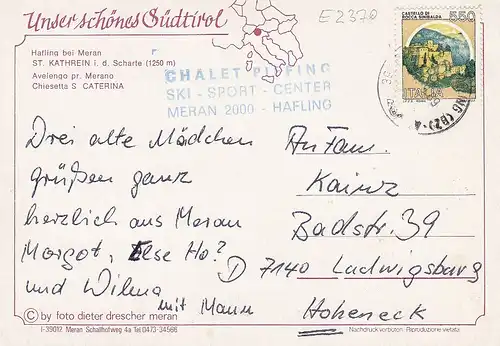 Unser schönes Südtirol
E 2370
Hafling bei Meran
ST. KATHREIN i. d. Scharte (1250 m)
Avelengo pr. Merano
Chiesetta S. CATERINA
CHALET PIFFING
SKI - SPORT - CENTER
MERAN 2000 - HAFLING
CASTELLO DI
ROCCA SINIBALDA
550
ITALIA
Drei alte Mädchen
grüßen ganz
herzlich aus Meran
Margot, Else Ho?
und Wilma
mit Mann
An Fam.
Kainz
Badstr. 39
D 7140 Ludwigsburg
Hoheneck
© by foto dieter drescher meran
I-39012 Meran Schallhofweg 4a Tel. 0473-34566
Nachdruck verboten · Riproduzione vietata